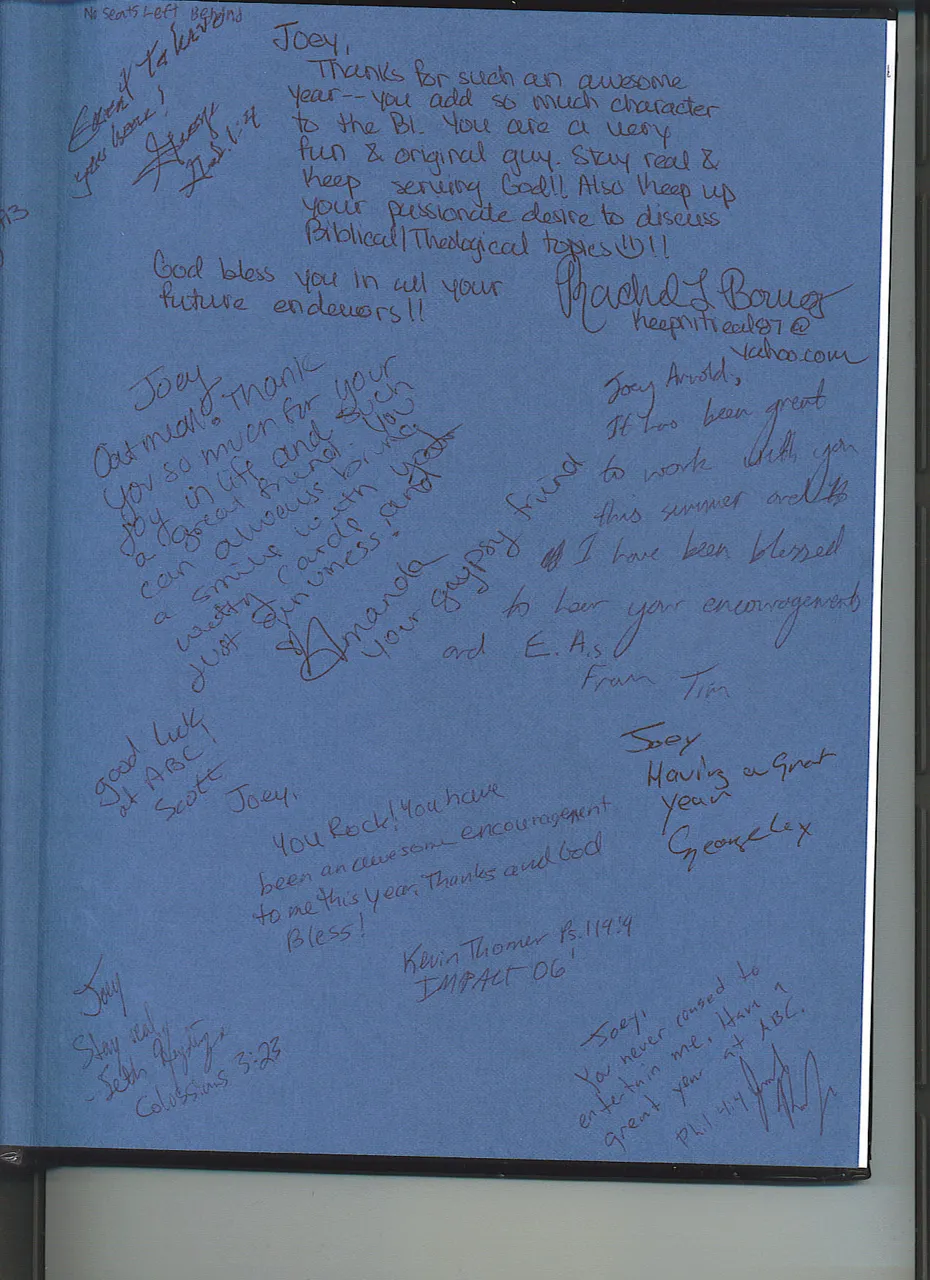 No Seats Left Behind
Great to have
you here!
George
Joey,
Thanks for such an awesome
year--you add so much character
to the BI. You are a very
fun & original guy. Stay real &
keep serving God!! Also keep up
your passionate desire to discuss
Biblical/Theological topics!!
God bless you in all your
future endevors!!
Rachel L
keepnitreal87@
yahoo.com
Joey
Oatmeal! Thank
you so much for your
joy in life and such
a great friend. You
can always bring
a smile with your
witty cards and
just genuiness.
Amanda
your gaypsy friend
Joey Arnold,
It has been great
to work with you
this summer and
I have been blessed
to hear your encouragements
and E.A.s
From Tim
good luck
at ABC!
Scott
Joey
Having a Great
year
George Lex
Joey,
You Rock! You have
been an awesome encouragement
to me this year. Thanks and God
Bless!
Kevin Thomer Ps. 119:9
IMPACT 06'
Joey
Stay real,
- Seth
Colossians 3:23
Joey,
You never caused to
entertain me. Have a
great year at ABC.
Phil 4:4